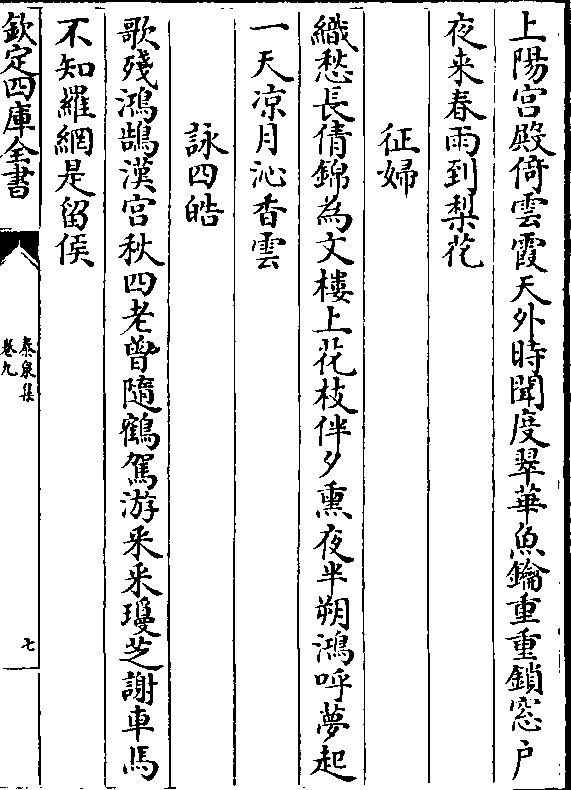 上陽宮殿倚雲霞天外時聞度翠華魚鑰重重鎖窓户
夜来春雨到梨花
征婦
織愁長倩錦為文樓上花枝伴夕熏夜半朔鴻呼夢起
一天凉月沁香雲
詠四皓
歌殘鴻鵠漢宮秋四老曾隨鶴駕游采采瓊芝謝車馬
不知羅網是留侯
欽定四庫全書
泰泉集
卷九
七